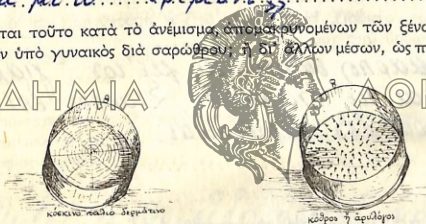 ται τοῦτο κατὰ τὸ ἀνέμισμα, ἀπομακρυνομένων τῶν ξένω
ν ὑπὸ γυναικὸς διὰ σαρώθρου; ἢ δι' ἄλλων μέσων, ὡς π
ΔΗΜΙΑ ΑΘΗ
κόσκινο παλιο δερμάτινο
κόθρος ἢ ἀρυλόγος